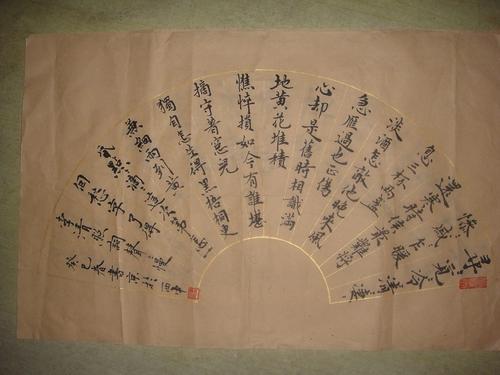 尋覓冷清凄
慘戚乍暖
還寒時候最難將
息三杯兩盞
淡酒怎敵他晚來風
急雁過也正傷
心却是舊時相識滿
地黄花堆積
憔悴損如今有誰堪
摘守著窓兒
獨自怎生得黑梧桐更
兼細雨到黄
昏點滴這次第怎一
個愁字了得
李清照詞聲聲慢
癸巳春書